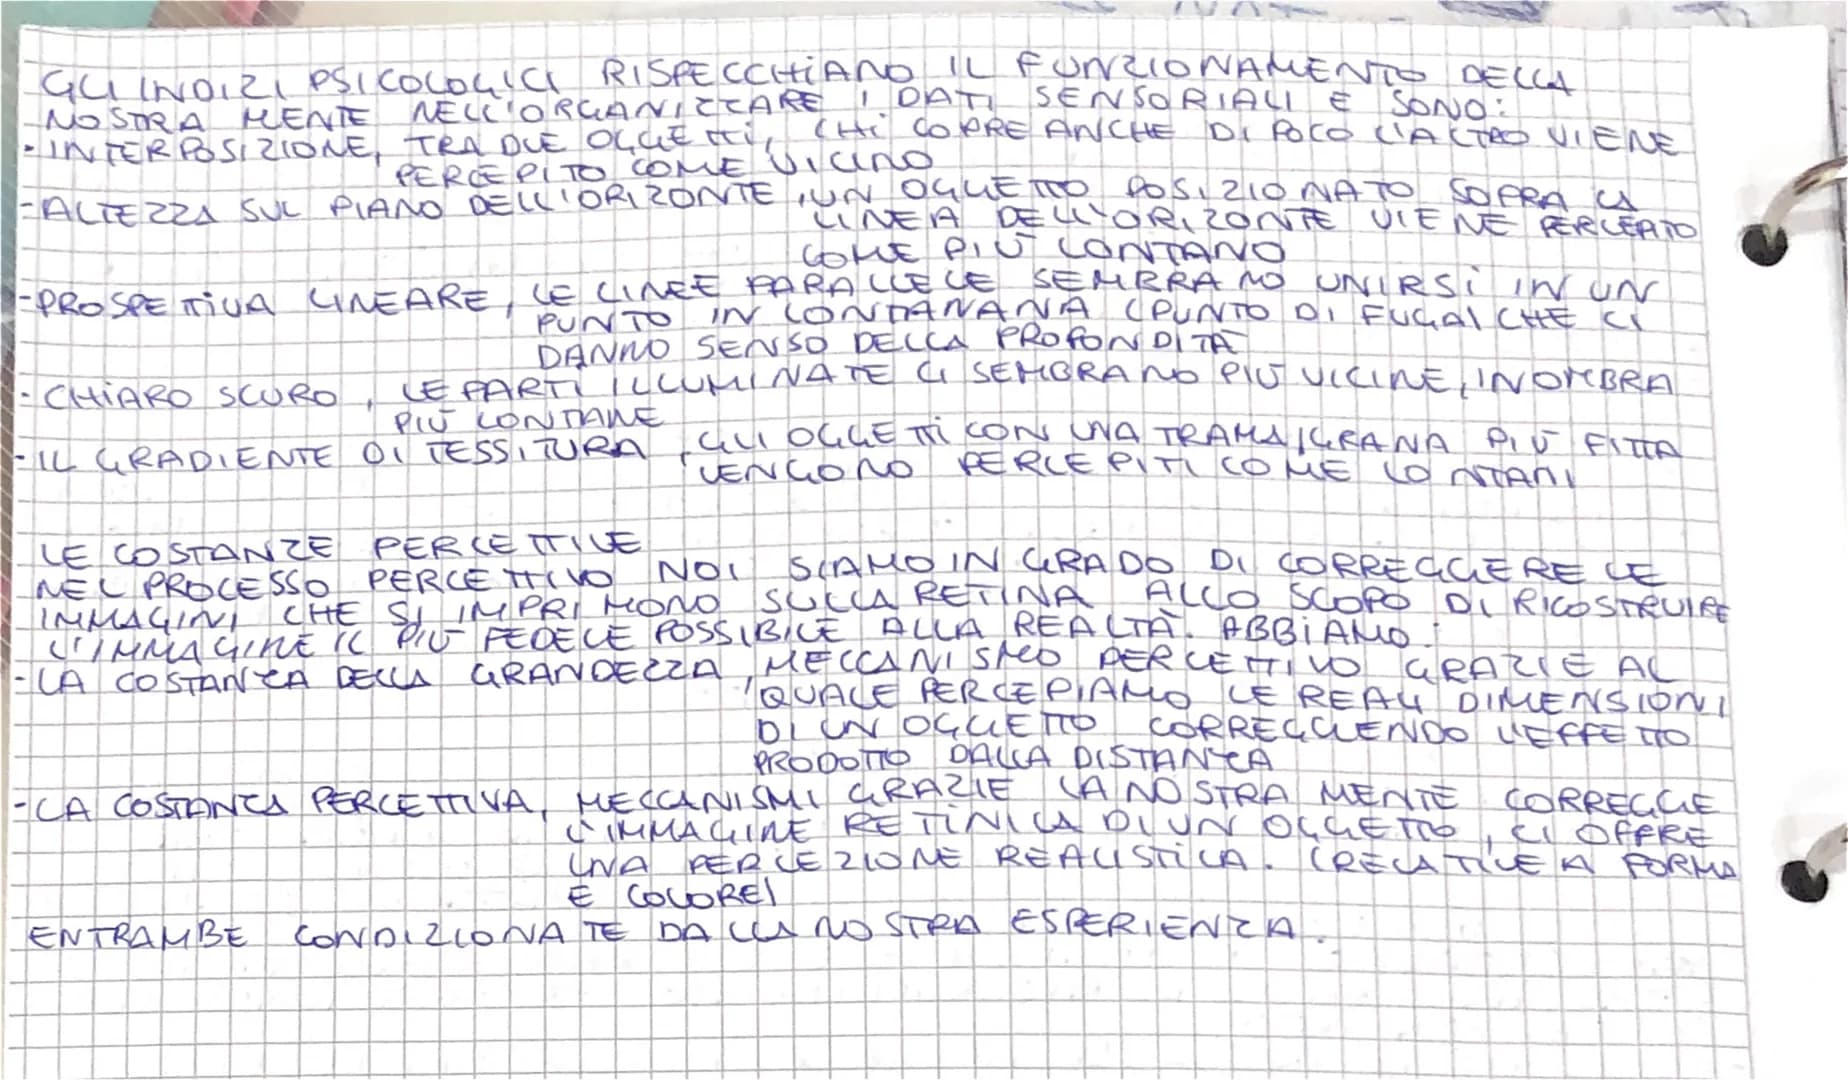 GLI INDIZI PSICOLOGICI RISPECCHIANO IL FUNZIONAMENTO DELLA
NOSTRA MENTE NELL'ORGANIZZARE I DATI SENSORIALI E SONO:
- INTERPOSIZIONE, TRA DUE OGGETTI, CHI COPRE ANCHE DI POCO L'ALTRO VIENE
PERCEPITO COME VICINO
- ALTEZZA SUL PIANO DELL'ORIZONTE, UN OGGETTO POSIZIONATO SOPRA LA
LINEA DELL'ORIZONTE VIENE PERCEPITO
COME PIÙ LONTANO
- PROSPETTIVA LINEARE, LE LINEE PARALLELE SEMBRANO UNIRSI IN UN
PUNTO IN LONTANANA (PUNTO DI FUGA) CHE CI
DANNO SENSO DELLA PROFONDITÀ
- CHIARO SCURO, LE PARTI ILLUMINATE CI SEMBRANO PIÙ VICINE, IN OMBRA
PIÙ LONTANE
- IL GRADIENTE DI TESSITURA, GLI OGGETTI CON UNA TRAMA/GRANA PIÙ FITTA
VENGONO PERCEPITI COME LONTANI
LE COSTANZE PERCETTIVE
NEL PROCESSO PERCETTIVO NOI SIAMO IN GRADO DI CORREGGERE LE
IMMAGINI CHE SI IMPRIMONO SULLA RETINA ALLO SCOPO DI RICOSTRUIRE
L'IMMAGINE IL PIÙ FEDELE POSSIBILE ALLA REALTÀ. ABBIAMO:
- LA COSTANZA DELLA GRANDEZZA, MECCANISMO PERCETTIVO GRAZIE AL
QUALE PERCEPIAMO LE REALI DIMENSIONI
DI UN OGGETTO CORREGGENDO L'EFFETTO
PRODOTTO DALLA DISTANZA
- LA COSTANZA PERCETTIVA, MECCANISMI GRAZIE LA NOSTRA MENTE CORREGGE
L'IMMAGINE RETINICA DI UN OGGETTO, CI OFFRE
UNA PERCEZIONE REALISTICA. (RELATIVE A FORMA
E COLORE)
ENTRAMBE CONDIZIONATE DALLA NOSTRA ESPERIENZA.